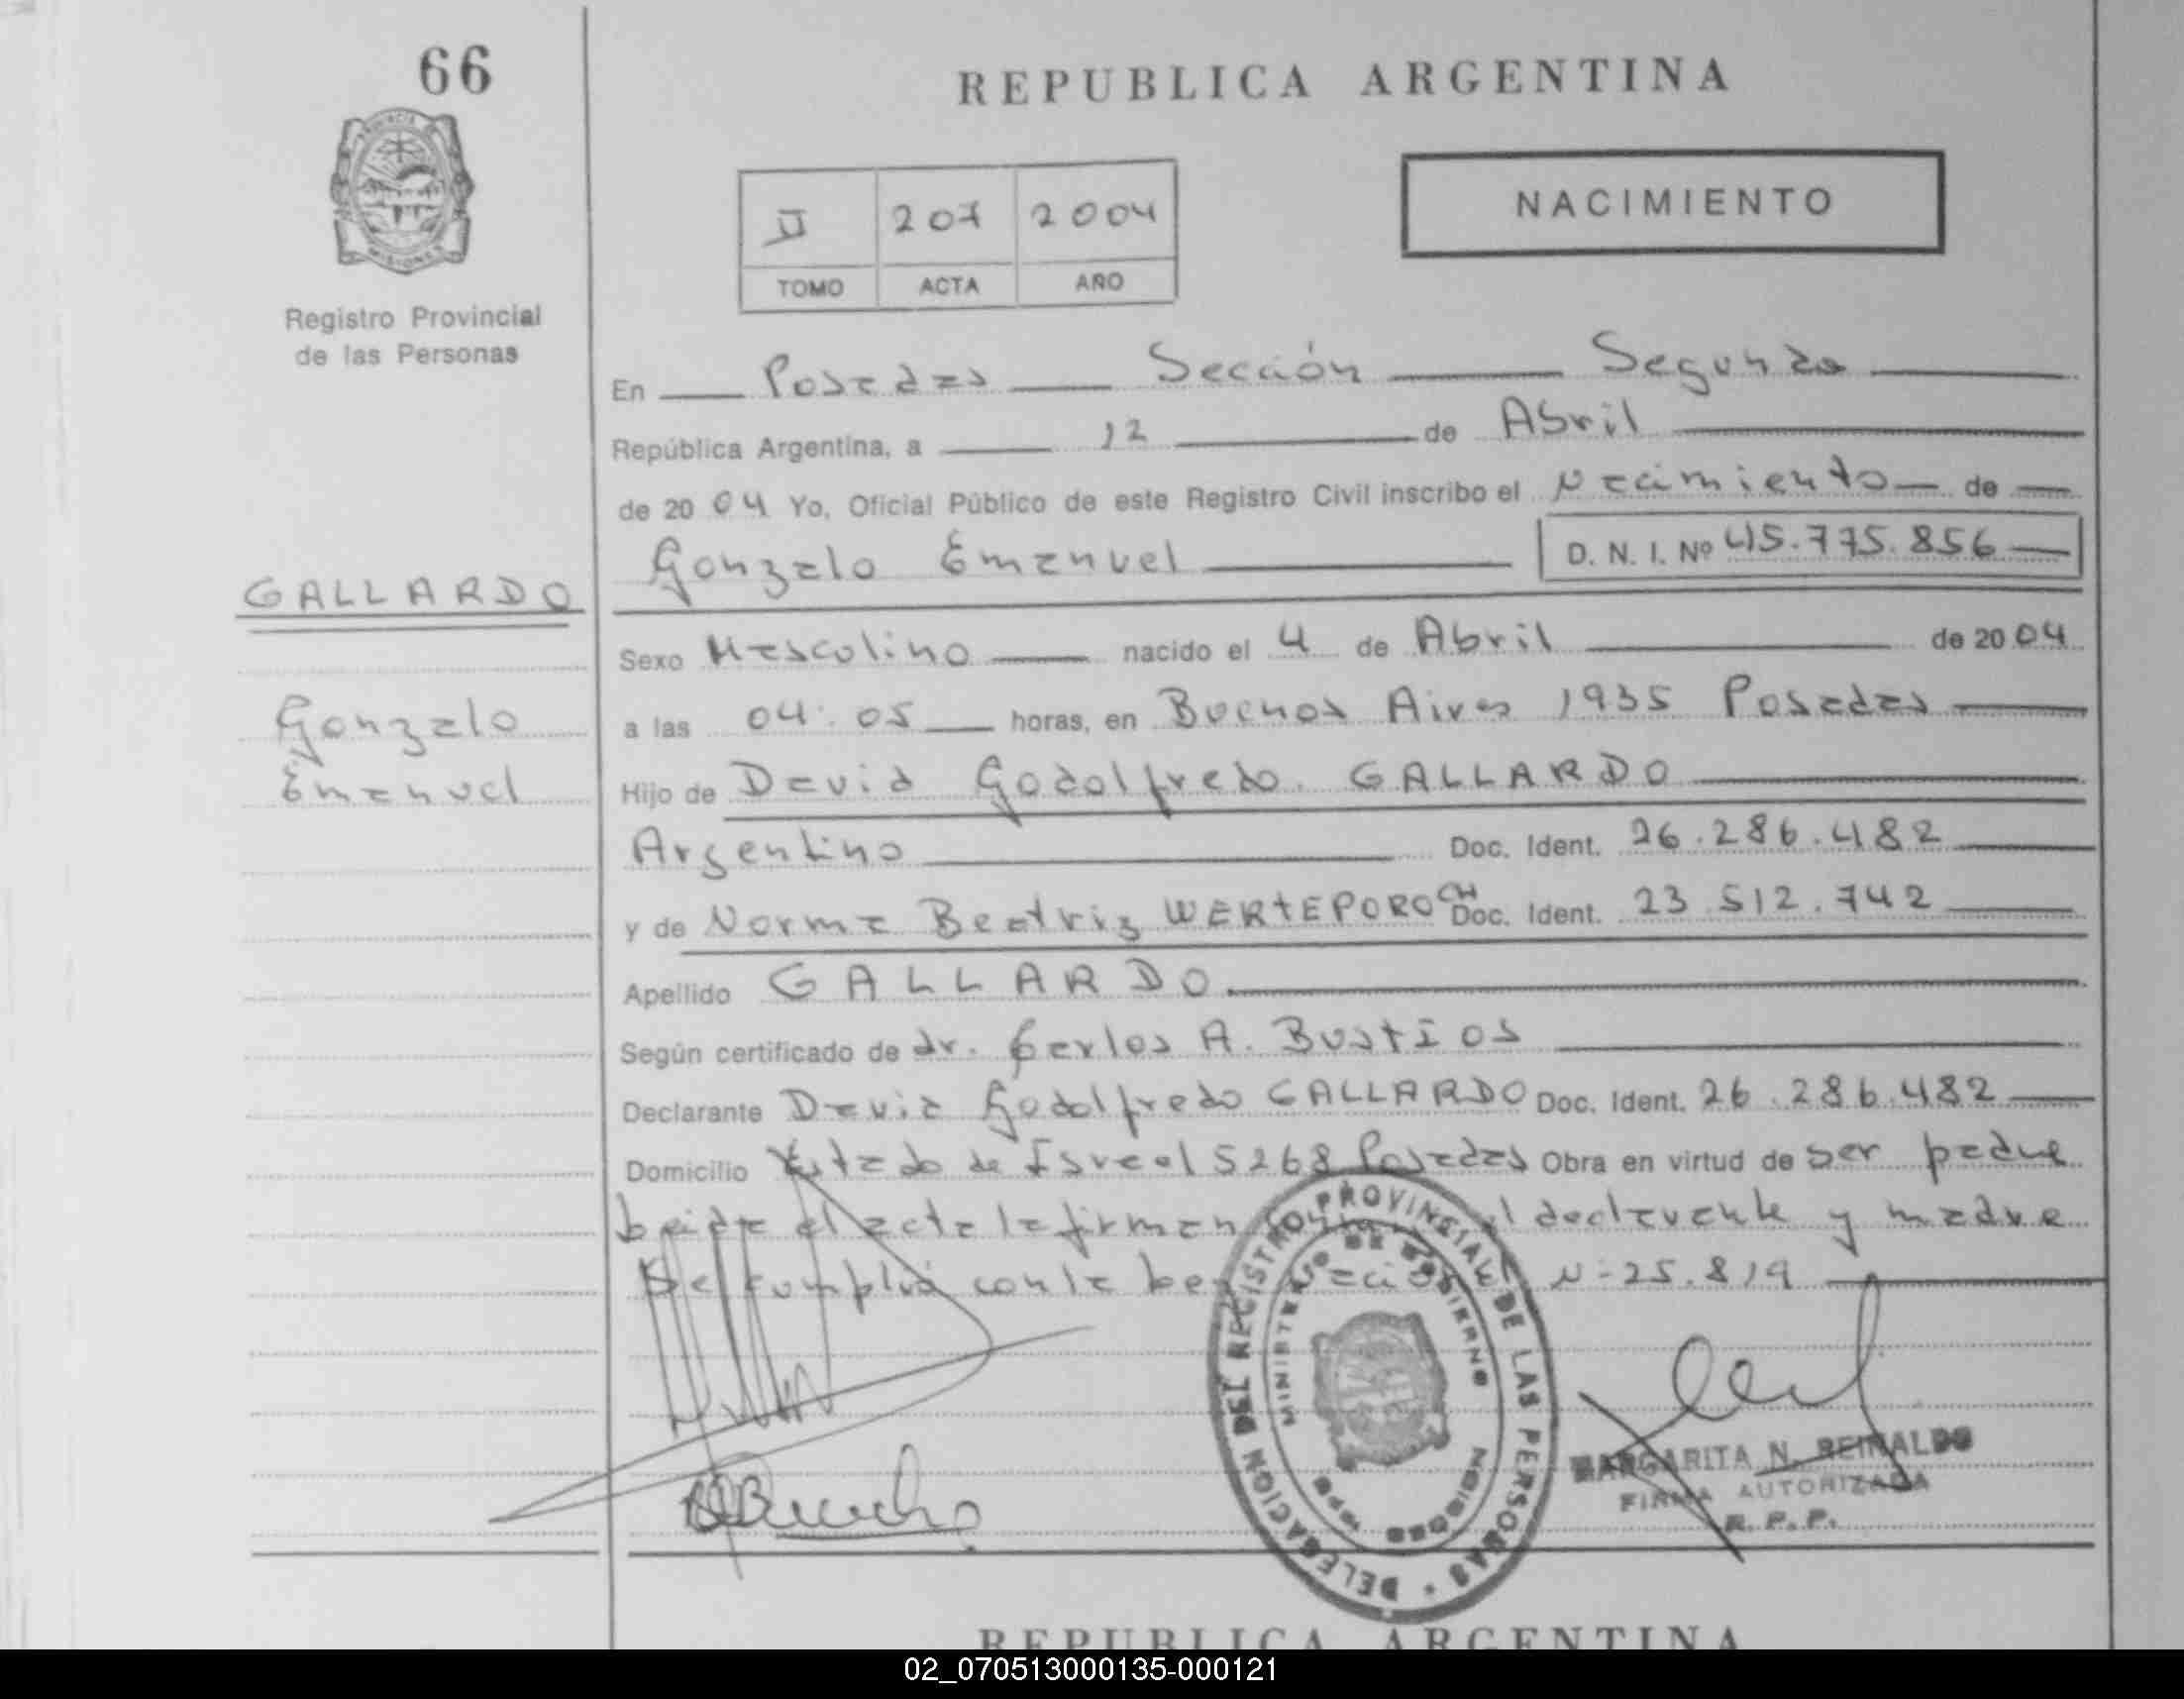 66
REPUBLICA ARGENTINA
NACIMIENTO
II 207 2004
TOMO ACTA AÑO
PROVINCIA
MISIONES
Registro Provincial
de las Personas
En Posadas Sección Segunda
República Argentina, a 12 de Abril
de 20 04 Yo, Oficial Público de este Registro Civil inscribo el Nacimiento de
Gonzalo Emanuel D. N. I. Nº 45.775.856
GALLARDO
Sexo Masculino nacido el 4 de Abril de 20 04
Gonzalo
a las 04:05 horas, en Buenos Aires 1935 Posadas
Emanuel
Hijo de David Godolfredo GALLARDO
Argentino Doc. Ident. 26.286.482
y de Norma Beatriz WERTEPOROCH Doc. Ident. 23.512.742
Apellido GALLARDO
Según certificado de dr. Carlos A. BUSTIOS
Declarante David Godolfredo GALLARDO Doc. Ident. 26.286.482
Domicilio Estado de Israel 5268 Posadas Obra en virtud de ser padre
el acta la firman el declarante y madre
Se cumplió con la N-25.819
DELEGACION DEL REGISTRO PROVINCIAL DE LAS PERSONAS
MINISTERIO DE GOBIERNO
POSADAS MISIONES
MARGARITA N. REINALDO
FIRMA AUTORIZADA
R. P. P.
REPUBLICA ARGENTINA
02_070513000135-000121